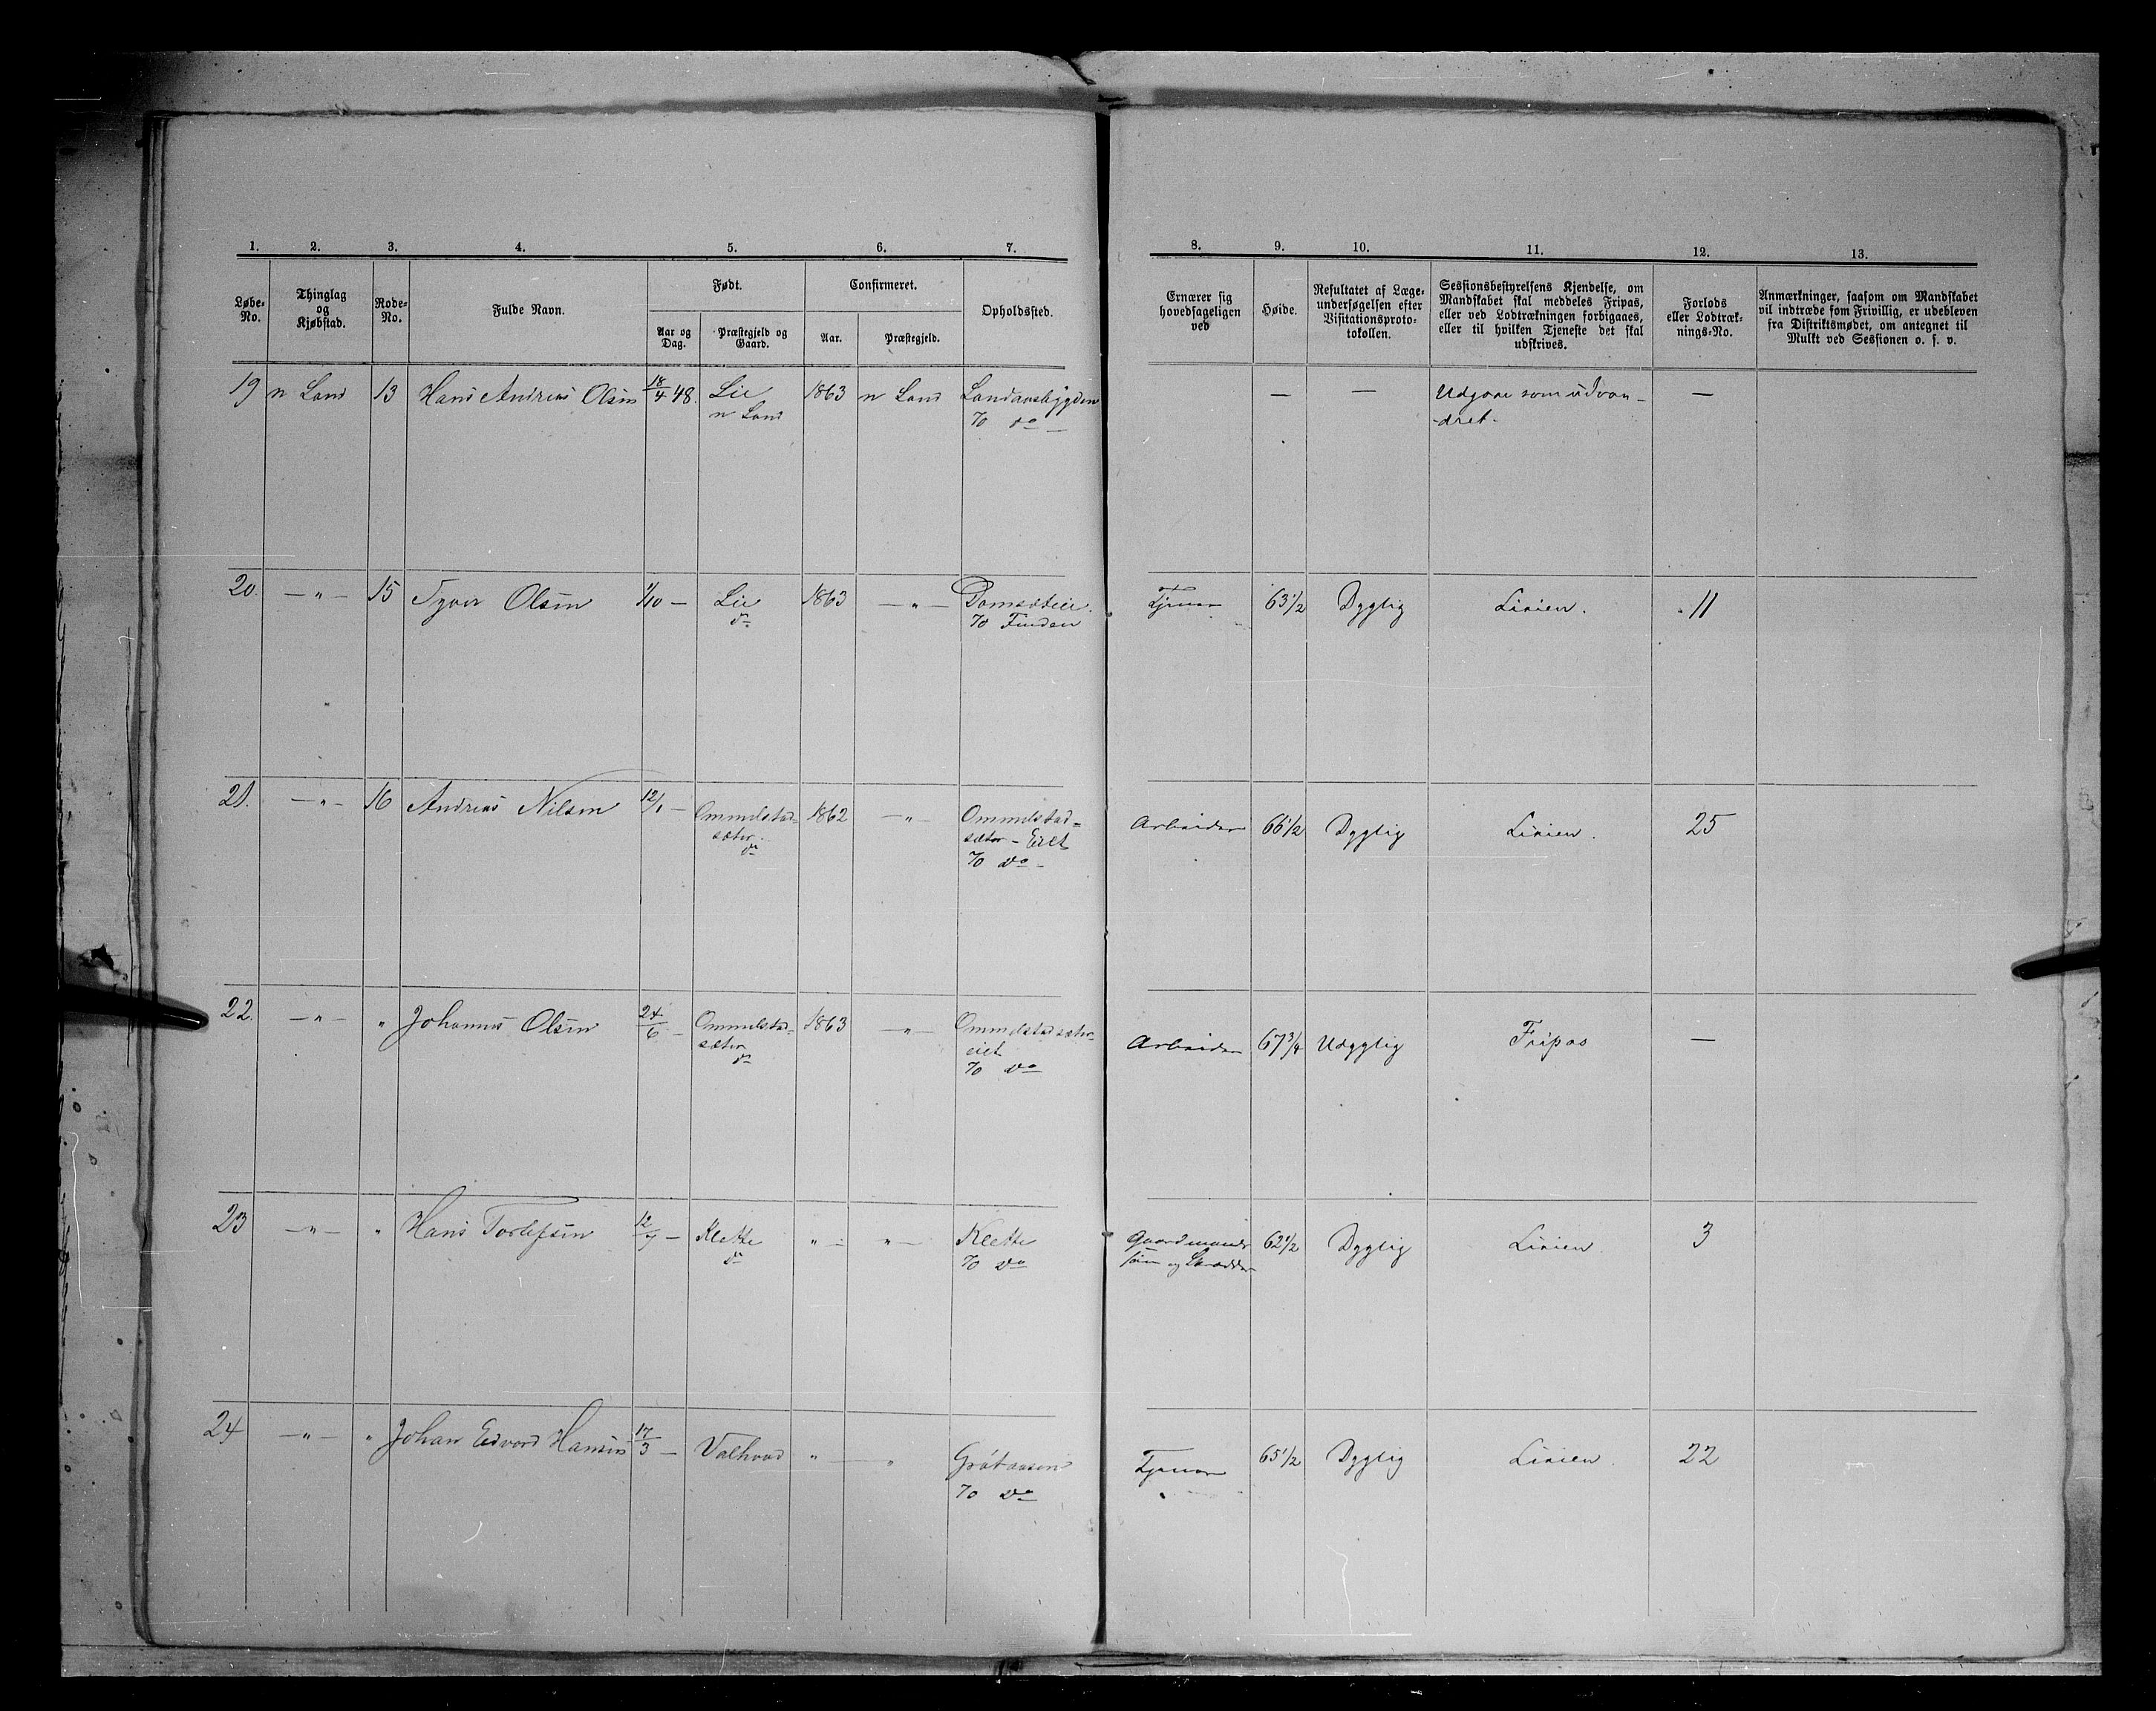 1. 2. 3. 4. 5. 6. 7. 8. 9. 10. 11. 12. 13.
Løbe-No.
Thinglag og Kjøbstad.
Rode-No.
Fulde Navn.
Født.
Aar og Dag.
Præstegjeld og Gaard.
Confirmeret.
Aar.
Præstegjeld.
Opholdssted.
Ernærer sig hovedsageligen ved
Høide.
Resultatet af Læge-
undersøgelsen efter
Visitationsproto-
tokollen.
Sessionsbestyrelsens Kjendelse, om
Mandskabet skal meddeles Fripas,
eller ved Lodtrækningen forbigaaes,
eller til hvilken Tjeneste det skal
udskrives.
Forlods
eller Lodtræk-
nings-No.
Anmærkninger, saasom om Mandskabet
vil indtræde som Frivillig, er udebleven
fra Distriktsmødet, om antegnet til
Mulkt ved Sessionen o. s. v.
19 n Land 13 Hans Andreas Olsen 18/4 48. Lie 1863 n Land Landaasbygden — — Udgaar som udvan-
n Land % do — -dret. —
20. —„— 15 Syver Olsen 1/10 — Lie 1863 —„— Tjener 63 1/2 Dygtig Linien. 11
do % Finden
21. —„— 16 Andreas Nilsen 12/1 — Ommelstad= 1862 —„— Ommelstad= Arbeider 66 1/2 Dygtig Linien. 25
sæter sæter - Eiet
do % do —
22. —„— „ Johannes Olsen 24/6 — Ommelstad= 1863 —„— Ommelstadsæter- Arbeider 67 3/4 Udygtig Fripas —
sæter eiet
do % do
23 —„— „ Hans Torlefsen 12/7 — Klette „ — „ — Klette Gaardmands 62 1/2 Dygtig Linien 3
do % do søn og Skrædder
24 —„— „ Johan Edvard Hansen 17/3 — Valhovd „ — „ Tjener 65 1/2 Dygtig Linien. 22
% do